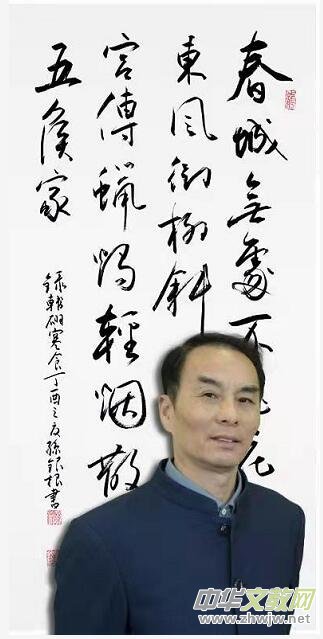 春城無處不飛花
東風御柳斜
宮傳蠟燭輕烟散
五侯家
錄韓翃寒食丁酉之夏孫銀根書
中华文教网
www.zhwjw.net